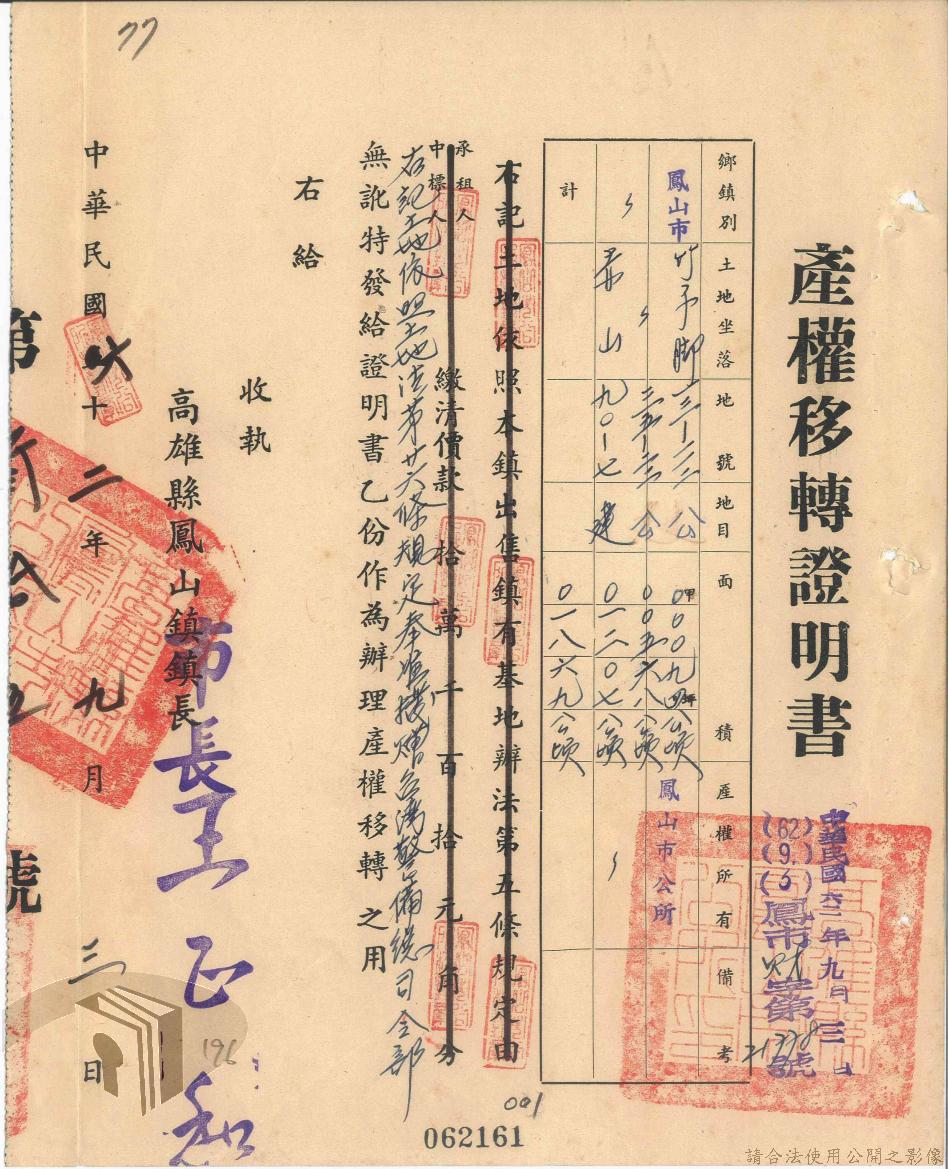 77
產權移轉證明書
中華民國六二年九月三日
(62)(9.)(3)鳳市財字第21378號
鄉鎮別 土地坐落 地號 地目 面積 產權所有 備考
鳳山市 竹子脚 公 甲 坪 公頃 鳳山市公所
公 公頃
山 九〇-七 建 〇一二〇七公頃
計 〇一八六九公頃
右記土地依照本鎮出售鎮有基地辦法第五條規定由
承租人
中標人 繳清價款 拾 萬 千 百 拾 元 角 分
右記土地依照土地法第廿六條規定奉准撥贈台灣警備總司令部
無訛特發給證明書乙份作為辦理產權移轉之用
右給
收執
高雄縣鳳山鎮鎮長
市長王正和
中華民國六十二年九月三日
第
號
196
001
062161
請合法使用公開之影像